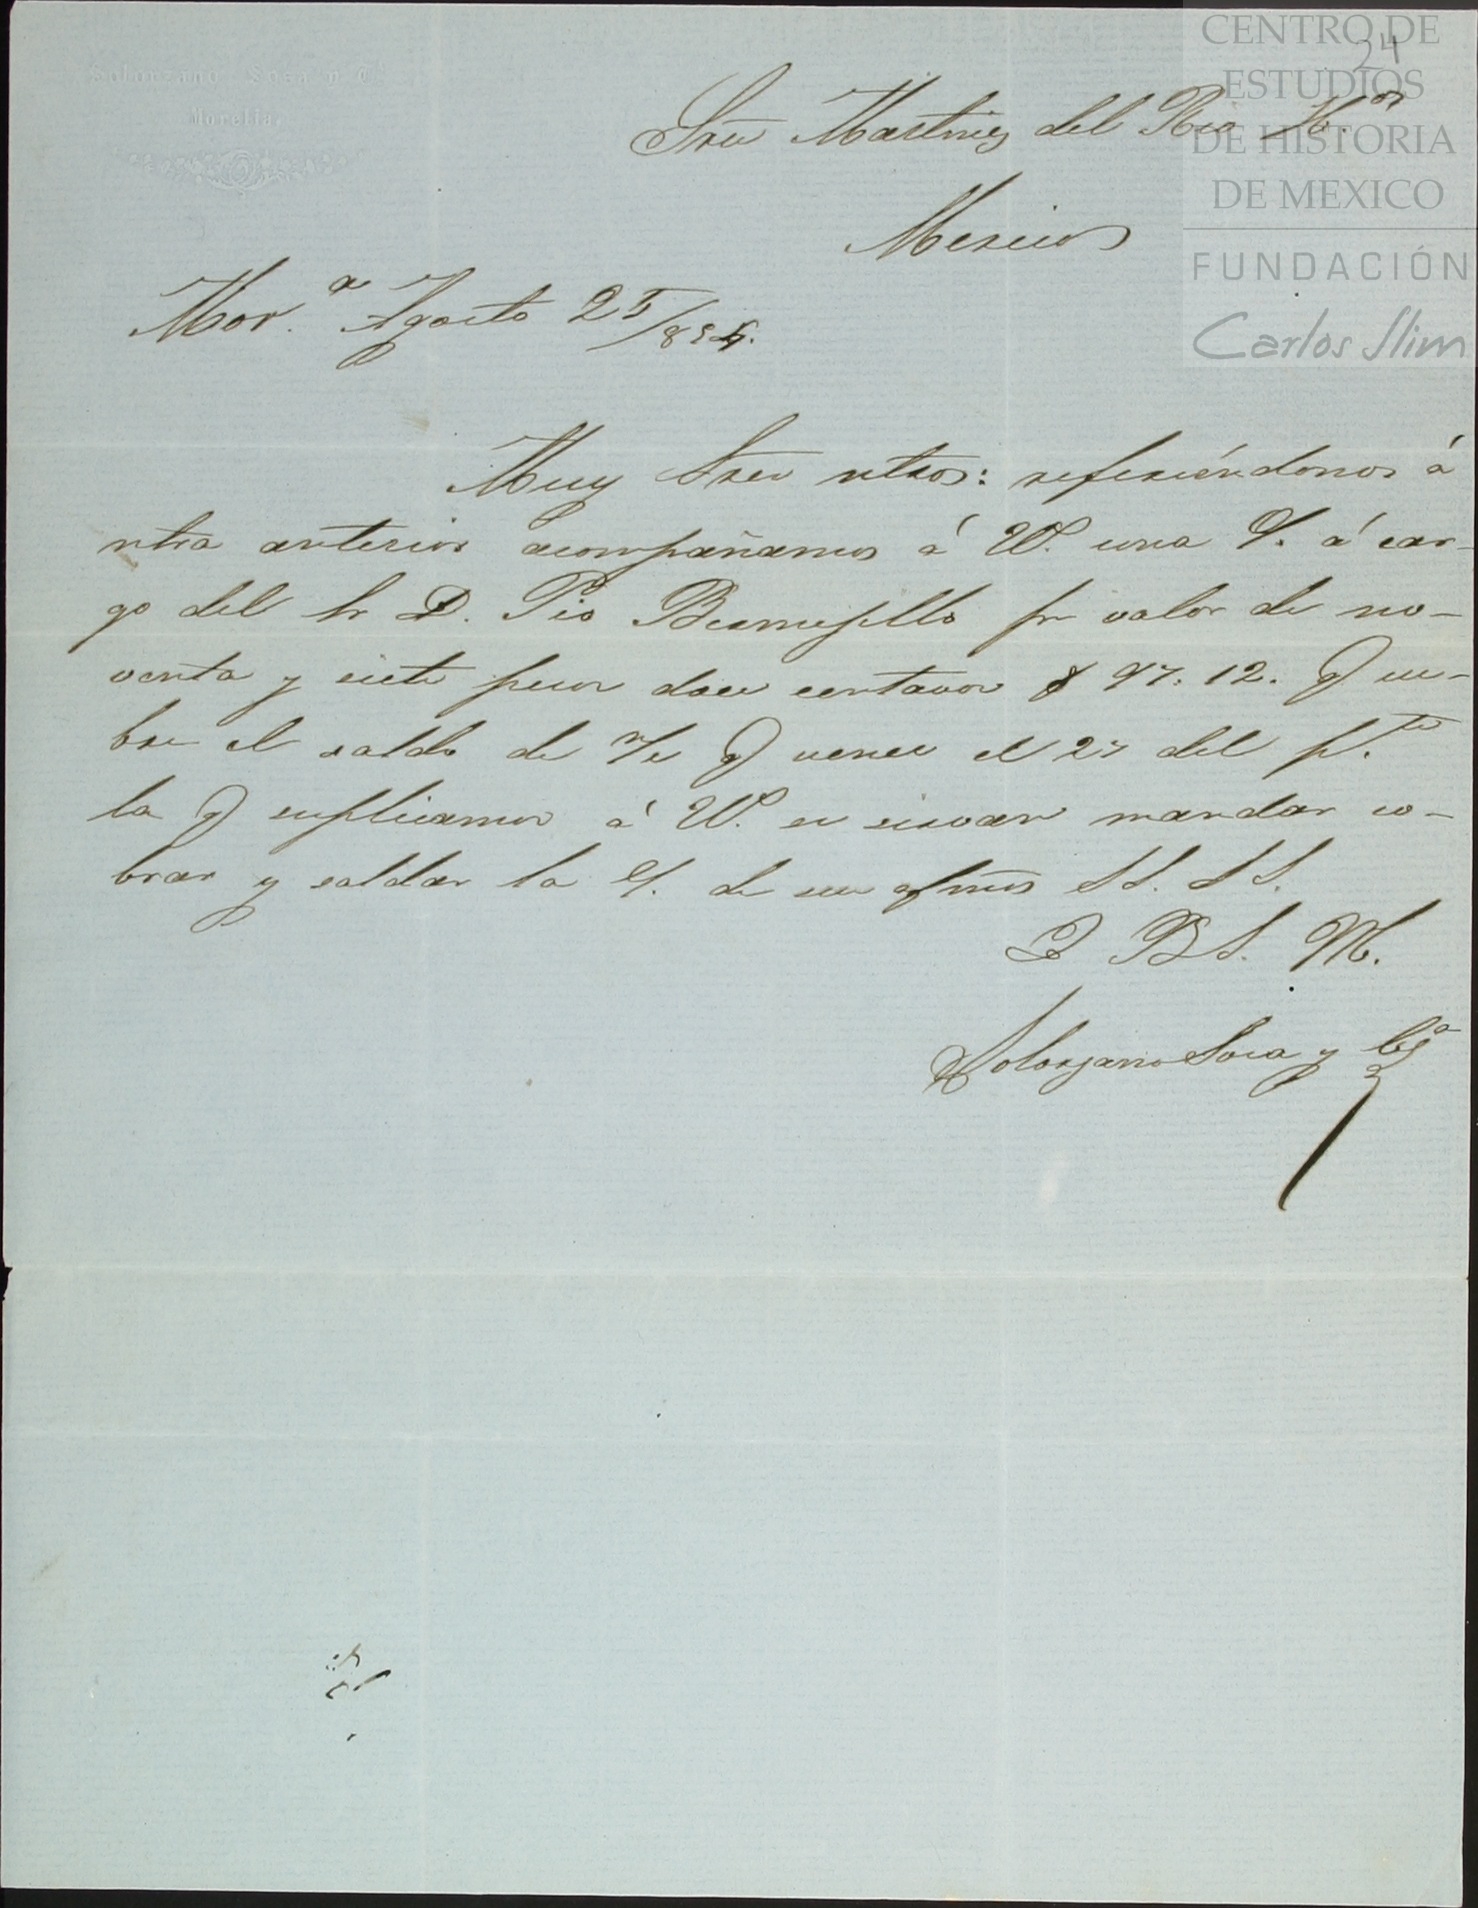 Solorzano Sosa y Cª
Morelia.
CENTRO DE
ESTUDIOS
DE HISTORIA
DE MEXICO
FUNDACIÓN
Carlos Slim
34
Sres Martinez del Rio Hnos
Mexico
Mor.ª Agosto 25/854.
Muy Sres ntros: refiriéndonos á
ntra anterior acompañamos á VV. una L. á car-
go del Sr D. Pio Bermejillo pr valor de no-
venta y siete pesos doce centavos $ 97.12. q cu-
bre el saldo de q vence el 27 del pte
la q suplicamos á VV. se sirvan mandar co-
brar y saldar la de sus afmos SS. SS.
Q B S. M.
Solorzano Sosa y Cª